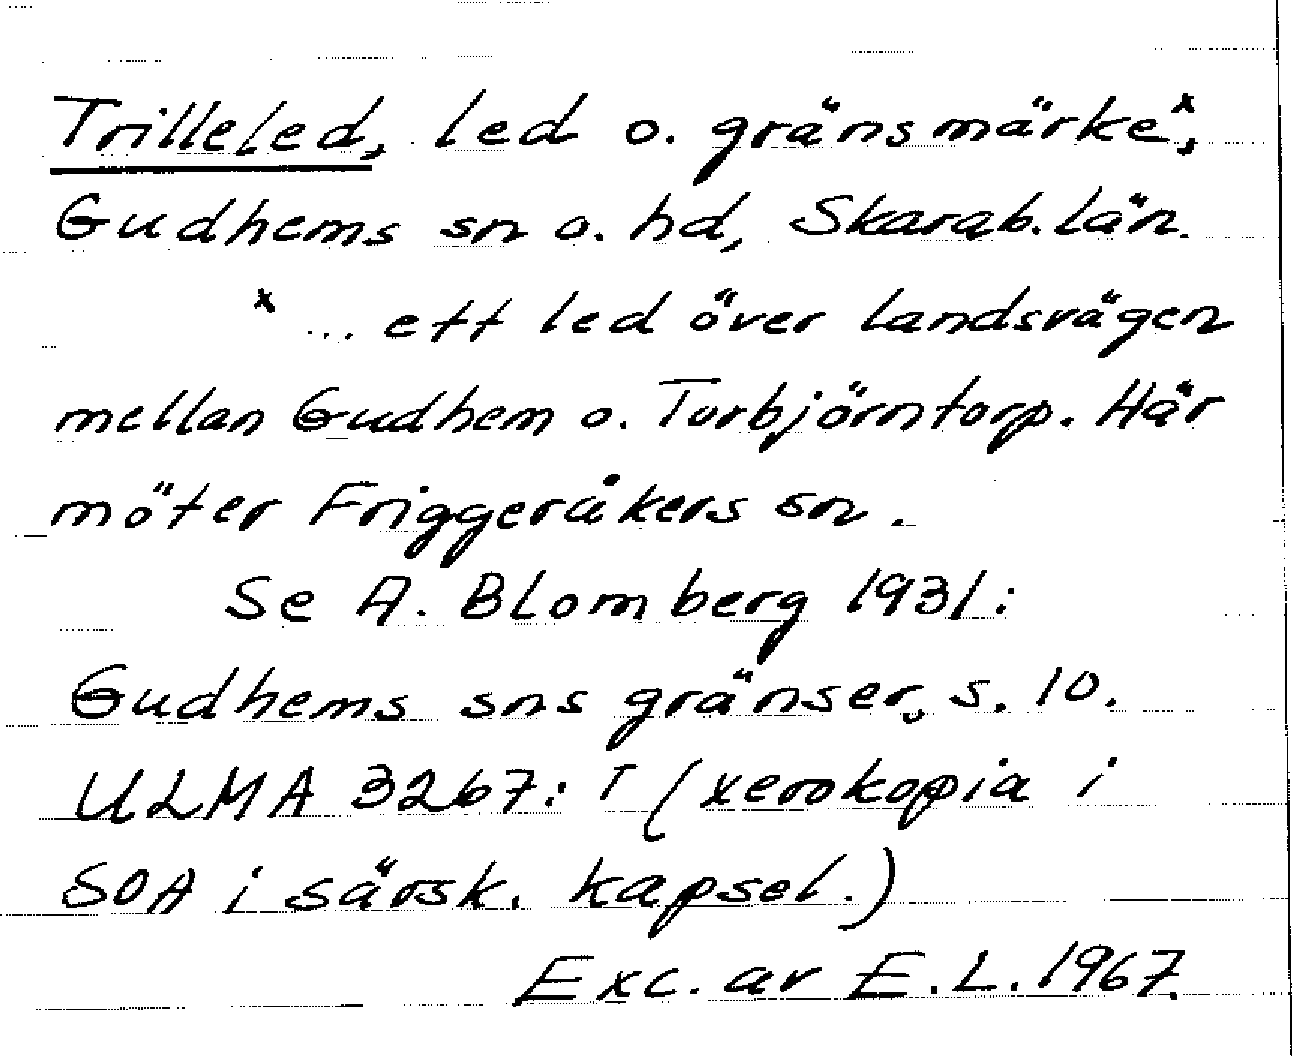 Trilleled, led o. gränsmärkeˣ,
Gudhems sn o. hd, Skarab. län.
ˣ ... ett led över landsvägen
mellan Gudhem o. Torbjörntorp. Här
möter Friggeråkers sn.
Se A. Blomberg 1931:
Gudhems sns gränser, s. 10.
ULMA 3267: I (xerokopia i
SOA i särsk. kapsel.)
Exc. av E. L. 1967.